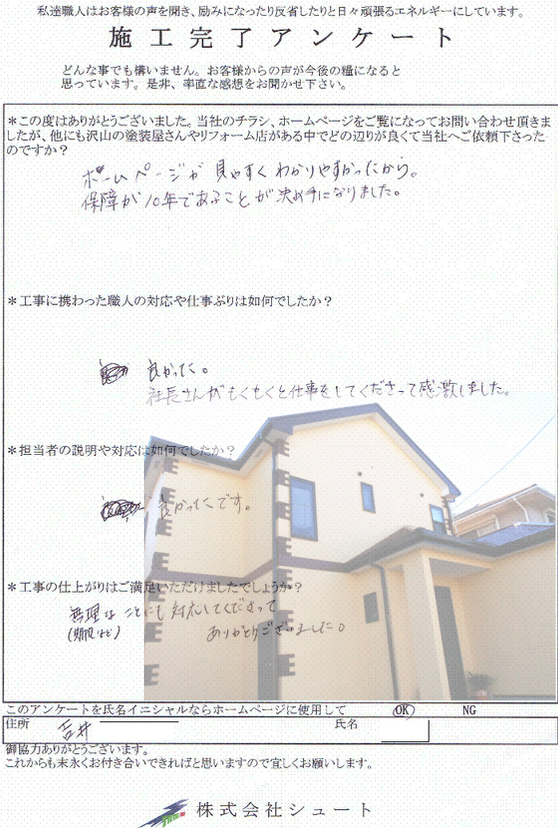 私達職人はお客様の声を聞き、励みになったり反省したりと日々頑張るエネルギーにしています。
施工完了アンケート
どんな事でも構いません。お客様からの声が今後の糧になると
思っています。是非、率直な感想をお聞かせ下さい。
＊この度はありがとうございました。当社のチラシ、ホームページをご覧になってお問い合わせ頂きま
したが、他にも沢山の塗装屋さんやリフォーム店がある中でどの辺りが良くて当社へご依頼下さった
のですか？
ホームページが見やすくわかりやすかったから。
保障が10年であることが決め手になりました。
＊工事に携わった職人の対応や仕事ぶりは如何でしたか？
良かった。
社長さんがもくもくと仕事をしてくださって感激しました。
＊担当者の説明や対応は如何でしたか？
良かったです。
＊工事の仕上がりはご満足いただけましたでしょうか？
無理なことにも対応してくださって
(期限など)
ありがとうございました。
このアンケートを氏名イニシャルならホームページに使用して OK NG
住所 氏名
御協力ありがとうございます。
これからも末永くお付き合いできればと思いますので宜しくお願いします。
株式会社シュート